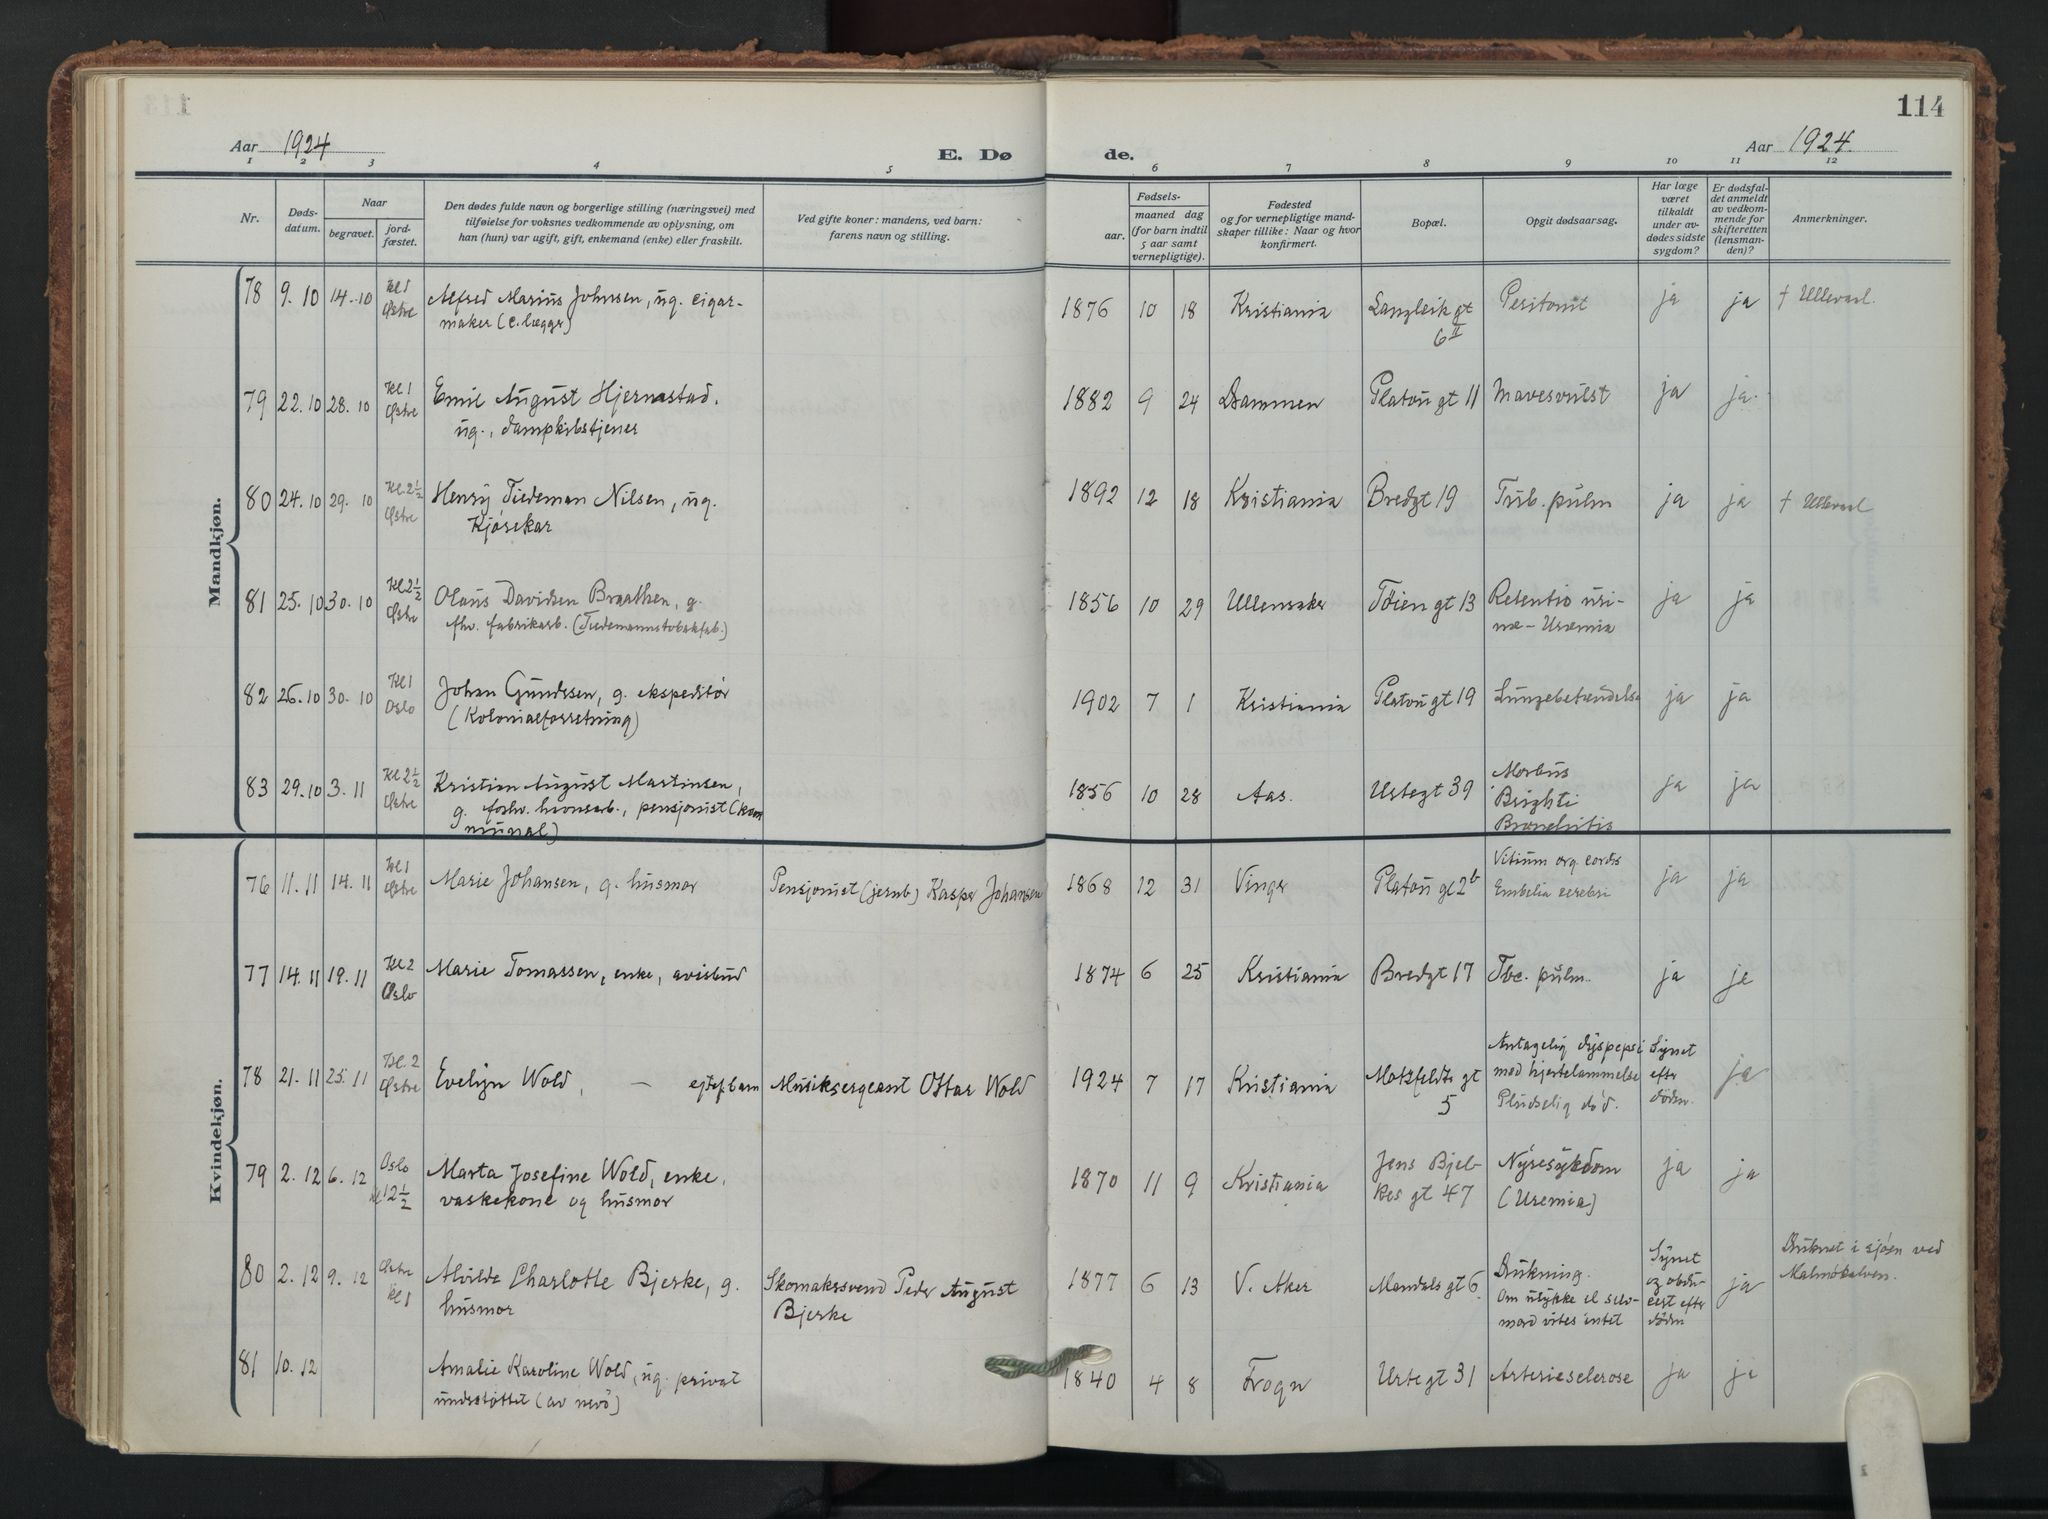 114
Aar 1924
E. Dø de.
Aar 1924.
1 2 3 4 5 6 7 8 9 10 11 12
Nr.
Døds-
datum.
Naar
begravet.
jord-
fæstet.
Den dødes fulde navn og borgerlige stilling (næringsvei) med
tilføielse for voksnes vedkommende av oplysning, om
han (hun) var ugift, gift, enkemand (enke) eller fraskilt.
Ved gifte koner: mandens, ved barn:
farens navn og stilling.
Fødsels-
aar.
maaned dag
(for barn indtil
5 aar samt
vernepligtige).
Fødested
og for vernepligtige mand-
skaper tillike: Naar og hvor
konfirmert.
Bopæl.
Opgit dødsaarsag.
Har læge
været
tilkaldt
under av-
dødes sidste
sygdom?
Er dødsfal-
det anmeldt
av vedkom-
mende for
skifteretten
(lensman-
den)?
Anmerkninger.
Mandkjøn.
78 9.10 14.10 Kl 1 Østre Alfred Marius Johnsen, ug. cigar- 1876 10 18 Kristiania Langleik gt Peritonit ja ja † Ullevaal.
maker (c.lægger) 6 II
79 22.10 28.10 Kl 1 Østre Emil August Hjernstad. 1882 9 24 Drammen Platou gt 11 Mavesvulst ja ja.
ug., dampskibstjener
80 24.10 29.10 Kl. 2½ Østre Henry Tiedeman Nilsen, ug. 1892 12 18 Kristiania Bredgt 19 Tub. pulm ja ja † Ullevaal
Kjørekar
81 25.10 30.10 Kl 2½ Østre Olaus Davidsen Braathen, g. 1856 10 29 Ullensaker Tøien gt 13 Retentio uri- ja ja
fhv. fabrikarb. (Tiedemannstobakfab.) næ - Uræmia
82 26.10 30.10 Kl 1 Oslo Johan Gundersen, g. ekspeditør 1902 7 1 Kristiania Platou gt 19 Lungebetændelse ja ja
(Kolonialforretning)
83 29.10 3.11 Kl 2½ Østre Kristian August Martinsen, 1856 10 28 Aas. Urtegt 39 Morbus ja ja
g. forhv. pensjonist (kom Brighti
munal) Bronchitis
Kvindekjøn.
76 11.11 14.11 Kl 1 Østre Marie Johansen, g. husmor Pensjonist (jernb) Kasper Johansen 1868 12 31 Vinger Platou gt 2 b Vitium org. cordis ja ja
Embolia cerebri
77 14.11 19.11 Kl 2 Oslo Marie Tomassen, enke, avisbud 1874 6 25 Kristiania Bredgt 17 Tbc. pulm. ja ja
78 21.11 25.11 Kl. 2 Østre Evelyn Wold, — egtef. barn Musiksergeant Ottar Wold 1924 7 17 Kristiania Motzfeldts gt Antagelig dyspepsi Synet ja
5 med hjertelammelse efter
Pludselig død. døden.
79 2.12 6.12 Oslo kl 12½ Marta Josefine Wold, enke, 1870 11 9 Kristiania Jens Bjel- Nyresykdom ja ja
vaskekone og husmor kes gt 47 (Uremia)
80 2.12 9.12 Østre kl 1 Alvilde Charlotte Bjerke, g. Skomakersvend Peder August 1877 6 13 V. Aker Mandals gt 6 Drukning. Synet ja Druknet i sjøen ved
husmor Bjerke Om ulykke el selv- og obdu- Malmøkalven.
mord vites intet cert efter
døden
81 10.12 Amalie Karoline Wold, ug. privat 1840 4 8 Frogn Urtegt 31 Arteriesclerose ja ja
understøttet (av nevø)